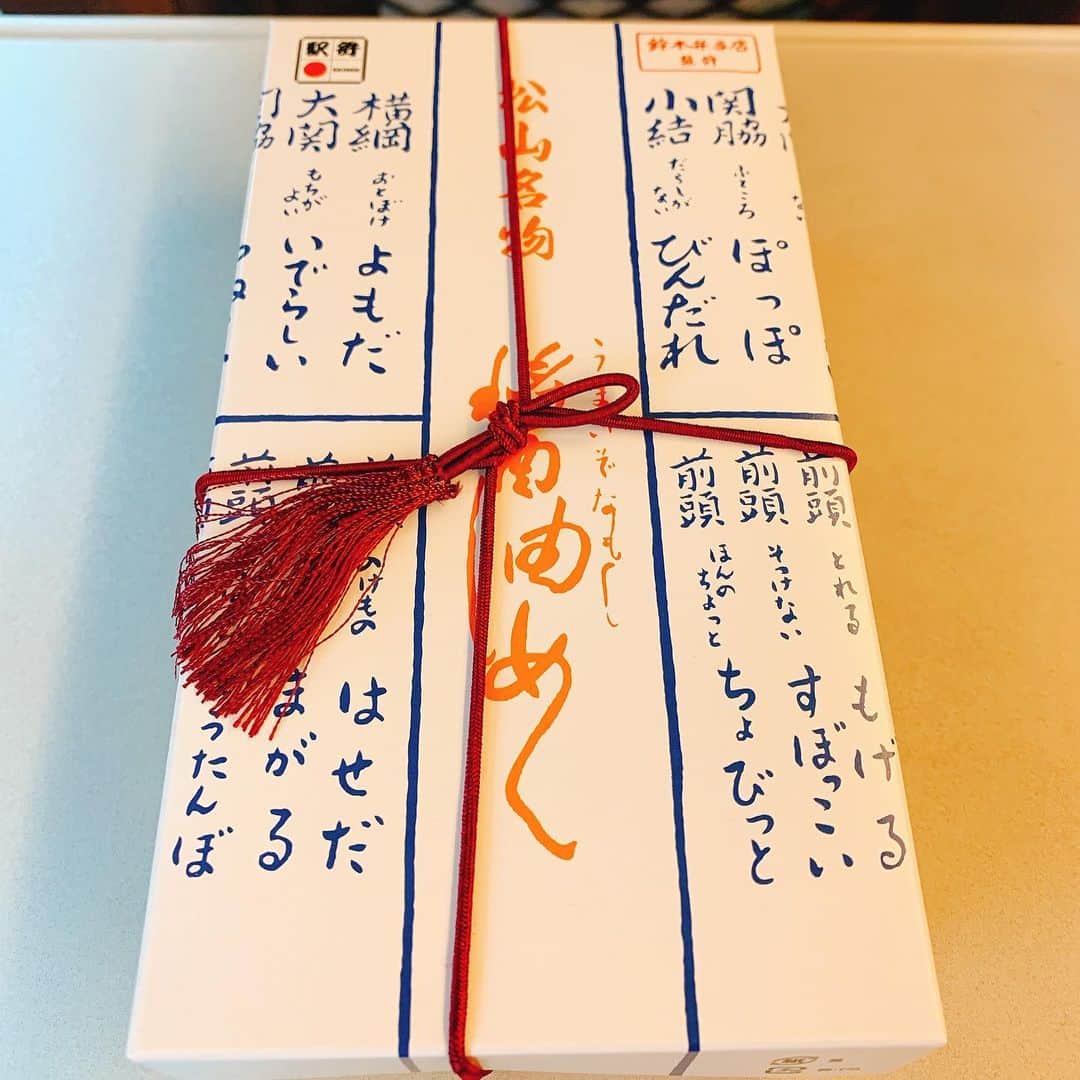 駅弁
鈴木弁当店
監修
関脇 ふところ ぽっぽ
小結 だらしがない びんだれ
松山名物
うまいぞなもし
醤油めし
横綱 おとぼけ よもだ
大関 もちがよい いでらしい
関脇
前頭 とれる もげる
前頭 そっけない すぼっこい
前頭 ほんのちょっと ちょびっと
のけもの はせだ
まがる
前頭
ったんぼ